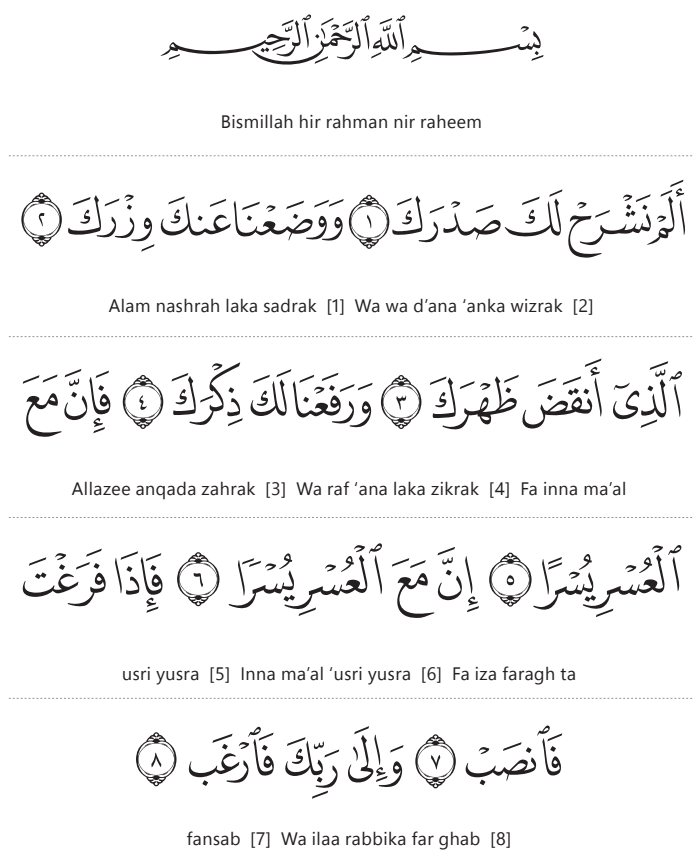 بِسْمِ ٱللَّهِ ٱلرَّحْمَٰنِ ٱلرَّحِيمِ
Bismillah hir rahman nir raheem
أَلَمْ نَشْرَحْ لَكَ صَدْرَكَ ١ وَوَضَعْنَا عَنكَ وِزْرَكَ ٢
Alam nashrah laka sadrak [1] Wa wa d’ana ‘anka wizrak [2]
ٱلَّذِىٓ أَنقَضَ ظَهْرَكَ ٣ وَرَفَعْنَا لَكَ ذِكْرَكَ ٤ فَإِنَّ مَعَ
Allazee anqada zahrak [3] Wa raf ‘ana laka zikrak [4] Fa inna ma’al
ٱلْعُسْرِ يُسْرًا ٥ إِنَّ مَعَ ٱلْعُسْرِ يُسْرًا ٦ فَإِذَا فَرَغْتَ
usri yusra [5] Inna ma’al ‘usri yusra [6] Fa iza faragh ta
فَٱنصَبْ ٧ وَإِلَىٰ رَبِّكَ فَٱرْغَب ٨
fansab [7] Wa ilaa rabbika far ghab [8]